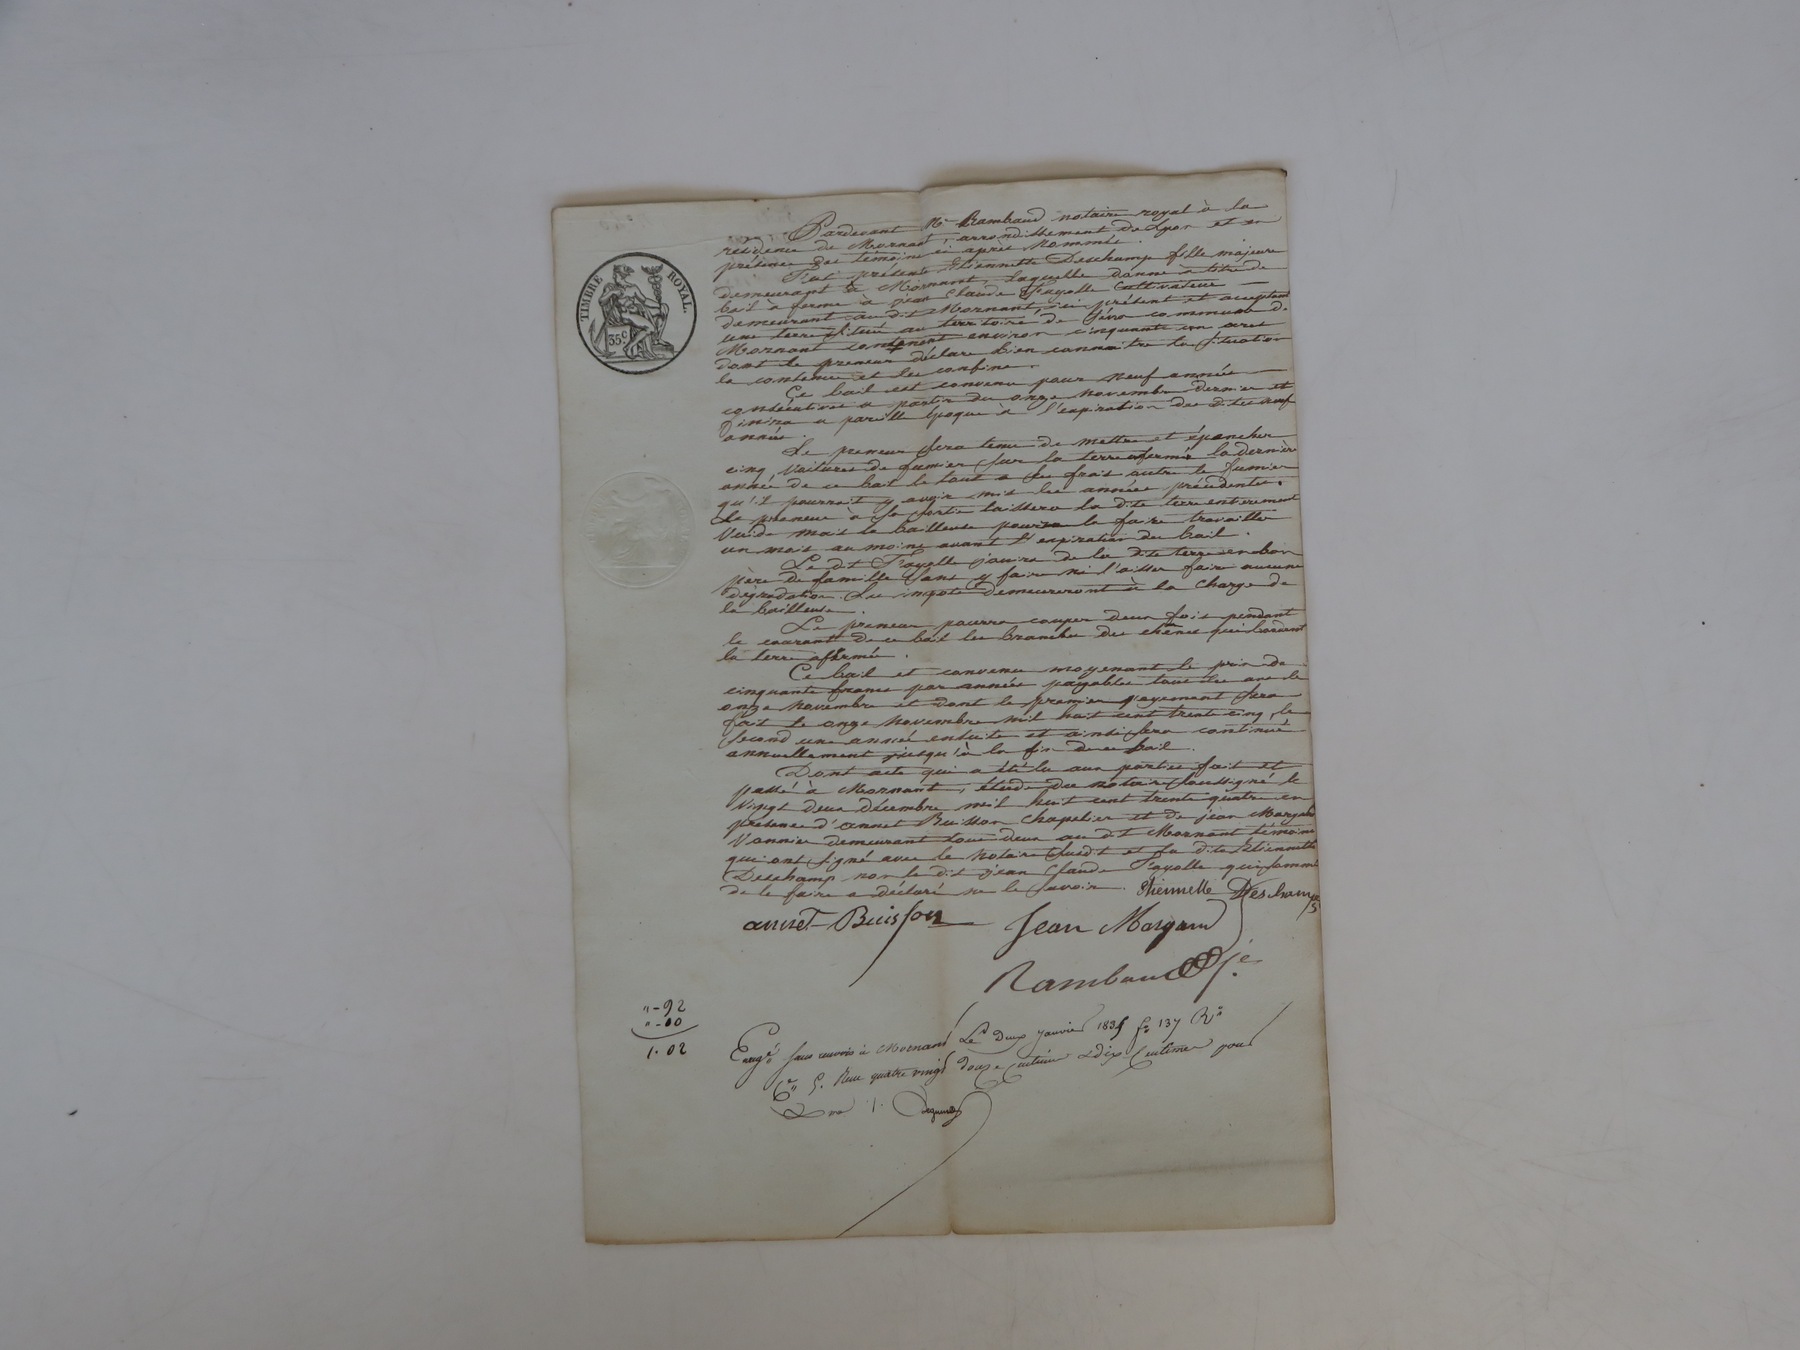 TIMBRE ROYAL.
35 c
Pardevant Me Rambaud notaire royal à la
résidence de Mornant, arrondissement de Lyon et en
présence des témoins ci après nommés.
Fut présente Etiennette Deschamp fille majeure
demeurant à Mornant, laquelle donne à titre de
bail à ferme à jean Claude Fayolle Cultivateur
demeurant au dit Mornant, ici présent et acceptant
une terre située au territoire de commune de
Mornant contenant environ cinquante un ares
dont le preneur déclare bien connaitre la situation
la contenue et les confins.
Ce bail est convenu pour neuf années
consécutives a partir du onze novembre dernier et
finira a pareille époque à l'expiration des dites neuf
années.
Le preneur sera tenu de mettre et épancher
cinq voitures de fumier sur la terre afermée la dernière
année de ce bail le tout a ses frais outre le fumier
qu'il pourrait y avoir mis les années précédentes.
Le preneur à sa sortie laissera la dite terre entierement
vuide mais la bailleuse pourra la faire travailler
un mois au moins avant l'expiration du bail.
Le dit Fayolle jouira de la dite terre en bon
père de famille sans y faire ni laisser faire aucune
dégradation. Les impots demeureront à la charge de
la bailleuse.
Le preneur pourra couper deux fois pendant
le courant de ce bail les branches des chênes qui bordent
la terre afermée.
Ce bail est convenu moyenant le prix de
cinquante francs par année payables tous les ans le
onze novembre et dont le premier payement sera
fait le onze novembre mil huit cent trente cinq, le
second une année ensuite et ainsi sera continué
annuellement jusqu'à la fin de ce bail.
Dont acte qui a été lu aux parties fait et
passé à Mornant, étude du notaire soussigné le
vingt deux décembre mil huit cent trente quatre en
présence d'annet Buisson chapelier et de jean Margand
Vannier demeurant tous deux au dit Mornant témoins
qui ont signé avec le notaire susdit et la dite Etiennette
Deschamp non le dit jean Claude Fayolle qui sommé
de le faire a déclaré ne le savoir. Etiennette Deschamps
annet Buisson Jean Margand
Rambaud
"-92
"-10
1.02
Enregé sans renvois à Mornant Le deux janvier 1835 fo 137 Ro
Ce 5. Reçu quatre vingt douze Centimes & dix Centimes pour